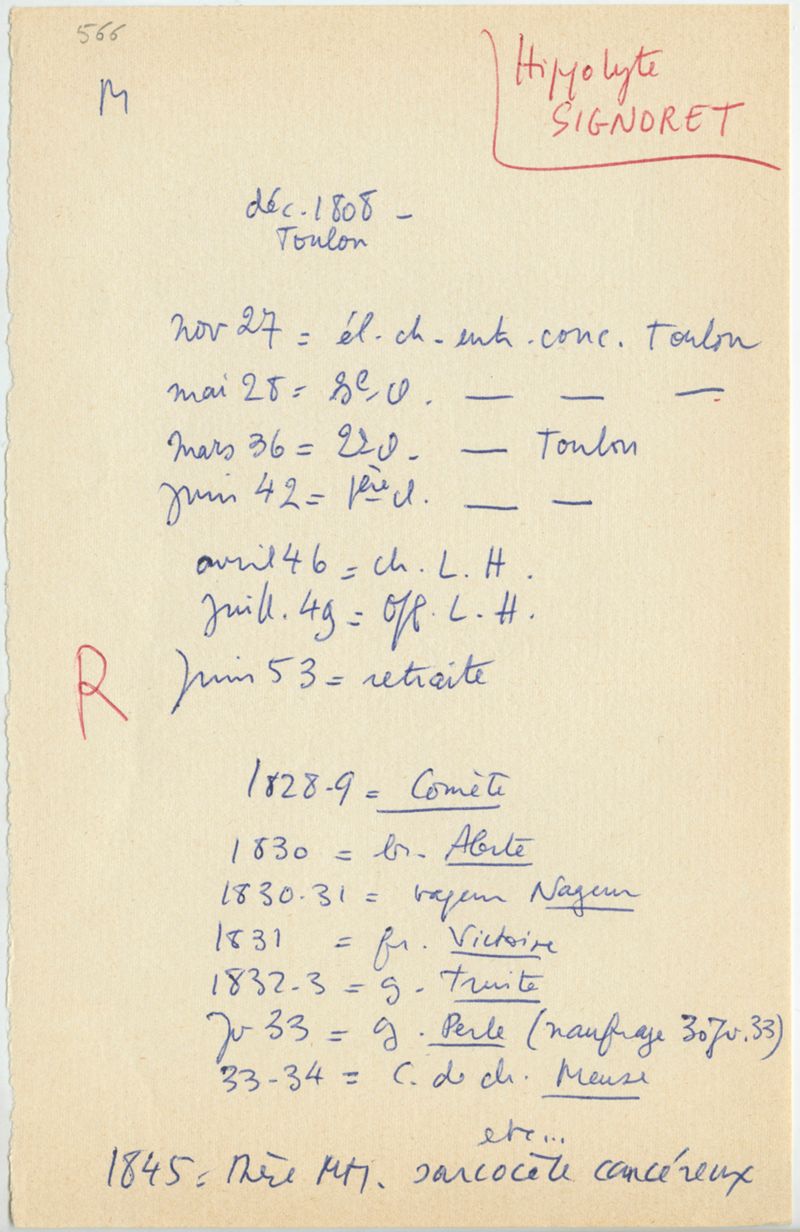 566
M
Hippolyte
SIGNORET
déc. 1808 -
Toulon
nov 27 = él. ch. entr. conc. Toulon
mai 28 = 3e cl. — — —
mars 36 = 2e cl. — Toulon
Juin 42 = 1ère cl. — —
avril 46 = ch. L. H.
Juill. 49 = off. L. H.
R
Juin 53 = retraite
1828-9 = Comète
1830 = br. Alerte
1830-31 = vapeur Nageur
1831 = fr. Victoire
1832-3 = g. Truite
Jv 33 = g. Perle (naufrage 30 Jv. 33)
33-34 = C. de ch. Meuse
etc...
1845 = thèse MM. sarcocèle cancéreux